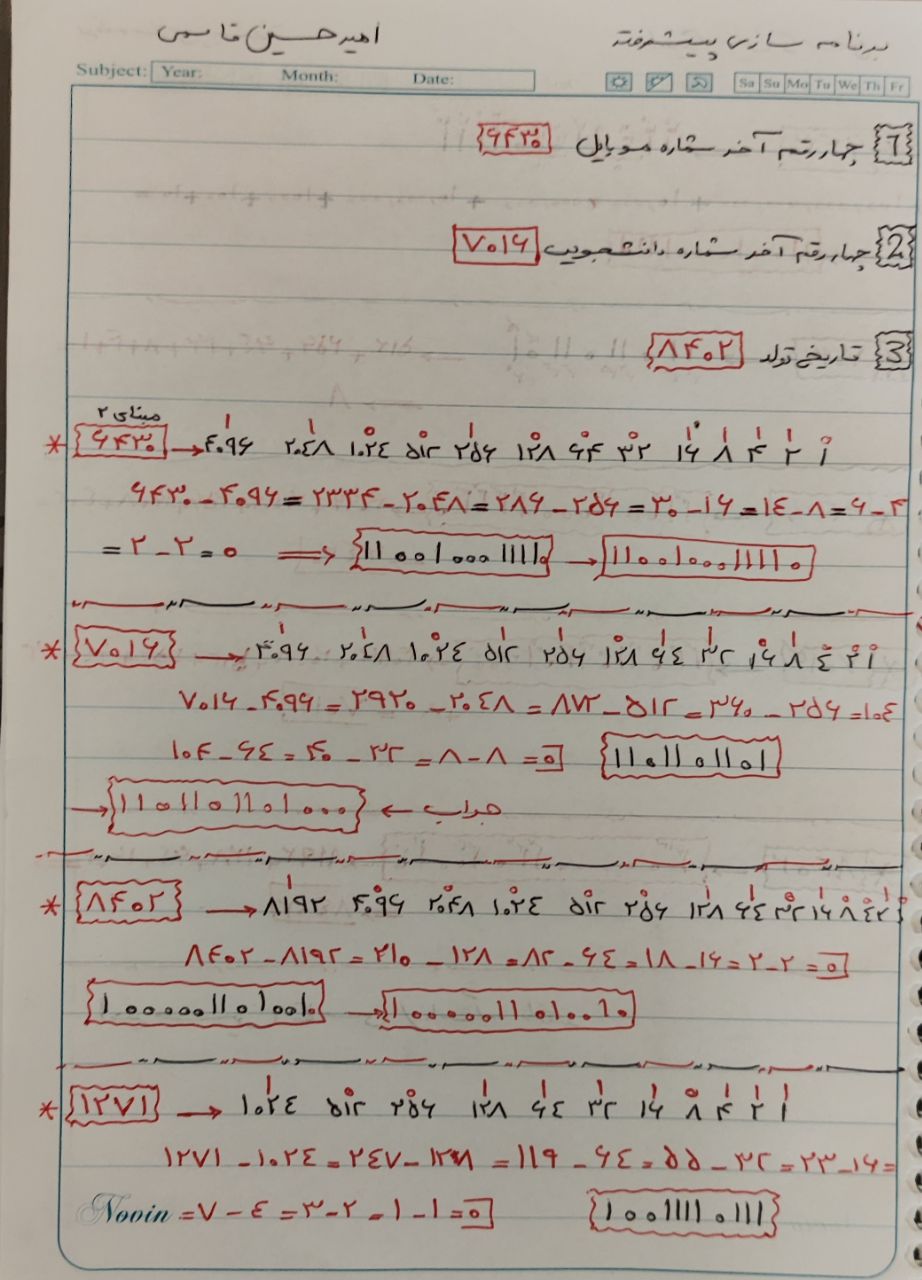 برنامه سازی پیشرفته امیرحسین قاسمی
Subject: Year: Month: Date: Sa Su Mo Tu We Th Fr
1 چهار رقم آخر شماره موبایل ۶۴۳۰
2 چهار رقم آخر شماره دانشجویی ۷۰۱۶
3 تاریخ تولد ۸۴۰۲
مبنای ۲
۱ ۱ ۰ ۰ ۱ ۰ ۰ ۰ ۱ ۱ ۱ ۱ ۰
* ۶۴۳۰ → ۴۰۹۶ ۲۰۴۸ ۱۰۲۴ ۵۱۲ ۲۵۶ ۱۲۸ ۶۴ ۳۲ ۱۶ ۸ ۴ ۲ ۱
۶۴۳۰ - ۴۰۹۶ = ۲۳۳۴ - ۲۰۴۸ = ۲۸۶ - ۲۵۶ = ۳۰ - ۱۶ = ۱۴ - ۸ = ۶ - ۴
= ۲ - ۲ = ۰ ⟹ ۱۱۰۰۱۰۰۰۱۱۱۱۰ → ۱۱۰۰۱۰۰۰۱۱۱۱۰
۱ ۱ ۰ ۱ ۱ ۰ ۱ ۱ ۰ ۱ ۰ ۰ ۰
* ۷۰۱۶ → ۴۰۹۶ ۲۰۴۸ ۱۰۲۴ ۵۱۲ ۲۵۶ ۱۲۸ ۶۴ ۳۲ ۱۶ ۸ ۴ ۲ ۱
۷۰۱۶ - ۴۰۹۶ = ۲۹۲۰ - ۲۰۴۸ = ۸۷۲ - ۵۱۲ = ۳۶۰ - ۲۵۶ = ۱۰۴
۱۰۴ - ۶۴ = ۴۰ - ۳۲ = ۸ - ۸ = ۰ ۱۱۰۱۱۰۱۱۰۱
→ ۱۱۰۱۱۰۱۱۰۱۰۰۰ ← جواب
۱ ۰ ۰ ۰ ۰ ۰ ۱ ۱ ۰ ۱ ۰ ۰ ۱ ۰
* ۸۴۰۲ → ۸۱۹۲ ۴۰۹۶ ۲۰۴۸ ۱۰۲۴ ۵۱۲ ۲۵۶ ۱۲۸ ۶۴ ۳۲ ۱۶ ۸ ۴ ۲ ۱
۸۴۰۲ - ۸۱۹۲ = ۲۱۰ - ۱۲۸ = ۸۲ - ۶۴ = ۱۸ - ۱۶ = ۲ - ۲ = ۰
۱۰۰۰۰۰۱۱۰۱۰۰۱۰ → ۱۰۰۰۰۰۱۱۰۱۰۰۱۰
۱ ۰ ۰ ۱ ۱ ۱ ۱ ۰ ۱ ۱ ۱
* ۱۲۷۱ → ۱۰۲۴ ۵۱۲ ۲۵۶ ۱۲۸ ۶۴ ۳۲ ۱۶ ۸ ۴ ۲ ۱
۱۲۷۱ - ۱۰۲۴ = ۲۴۷ - ۱۲۸ = ۱۱۹ - ۶۴ = ۵۵ - ۳۲ = ۲۳ - ۱۶ =
Novin = ۷ - ۴ = ۳ - ۲ = ۱ - ۱ = ۰ ۱۰۰۱۱۱۱۰۱۱۱